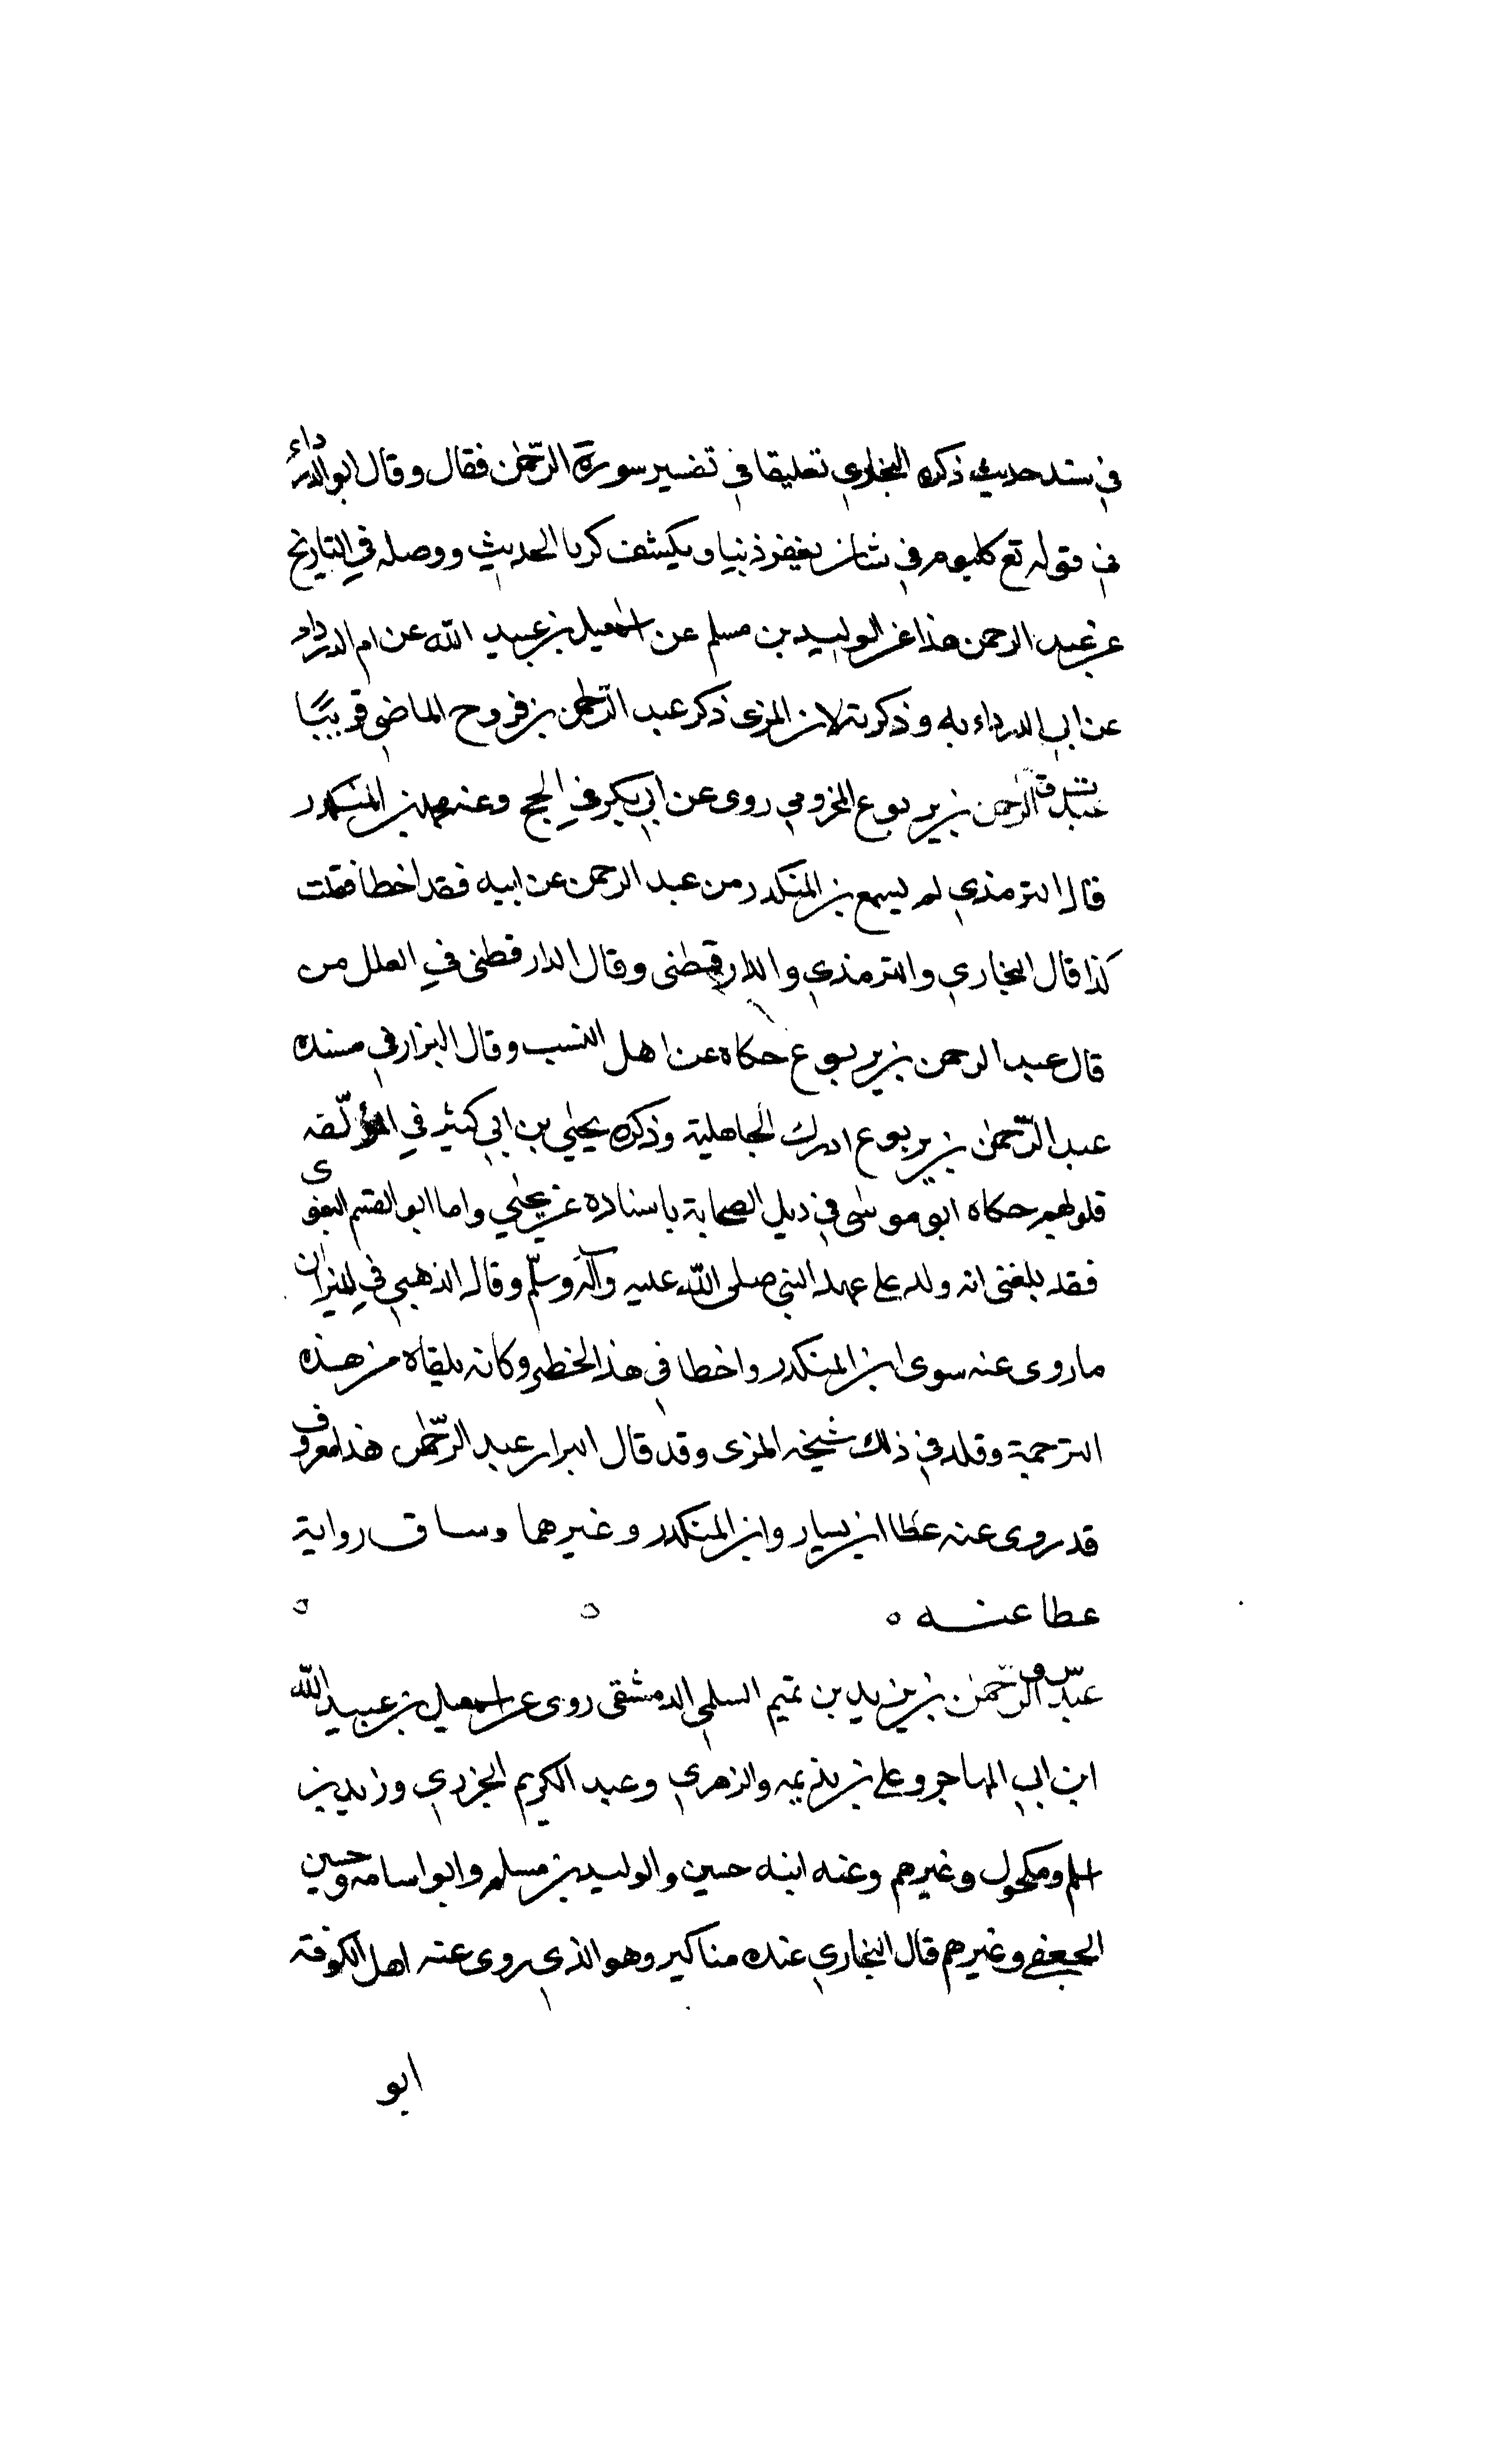 في سند حديث ذكره البخاري تعليقا في تفسير سورة الرحمٰن فقال وقال ابو الدرداء
في قوله تع كل يوم هو في شان يغفر ذنبا ويكشف كربا الحديث ووصله في التاريخ
عن عبد الرحمن هذا عن الوليد بن مسلم عن اسمعيل بن عبيد الله عن ام الدرداء
عن ابي الدرداء به وذكرته لان المزى ذكر عبد الرحمٰن بن فروخ الماضي قريبًا
ت ق
عبد الرحمن بن يربوع المخزومي روى عن ابي بكر في الحج وعنه محمد بن المنكدر
قال الترمذي لم يسمع بن المنكدر من عبد الرحمن عن ابيه فقد اخطا فقلت
كذا قال البخاري والترمذي والدارقطنى وقال الدارقطنى في العلل من
قال عبد الرحمن بن يربوع حكاه عن اهل النسب وقال البزار في مسنده
عبد الرّحمٰن بن يربوع ادرك الجاهلية وذكره يحيٰي بن ابي كثير في المؤلّفه
قلوبهم حكاه ابو موسٰى في ذيل الصحابة باسناده عن يحيٰي واما ابو القسم البغوى
فقد بلغنى انه ولد على عهد النبي صلى اللّه عليه وآله وسلّم وقال الذهبي في الميزان
ما روى عنه سوى ابن المنكدر واخطا في هذا الخطر وكانه تلقاه من هذه
الترجمة وقلد في ذلك شيخه المزى وقد قال البزار عبد الرّحمٰن هذا معروف
قد روى عنه عطا ابن يسار وابن المنكدر وغيرهما وساق رواية
عطا عنه ٥ ٥ ٥
س ق
عبد الرّحمٰن بن يزيد بن تميم السلمي الدمشقى روى عن اسمعيل بن عبيد اللّه
ابن ابي المهاجر وعلى بن بذيمه والزهري وعبد الكريم الجزري وزيد بن
اسلم ومكحول وغيرهم وعنه ابنه حسين والوليد بن مسلم وابو اسامه وحسين
الجعفي وغيرهم قال البخاري عنده مناكير وهو الذي روى عنه اهل الكوفة
ابو